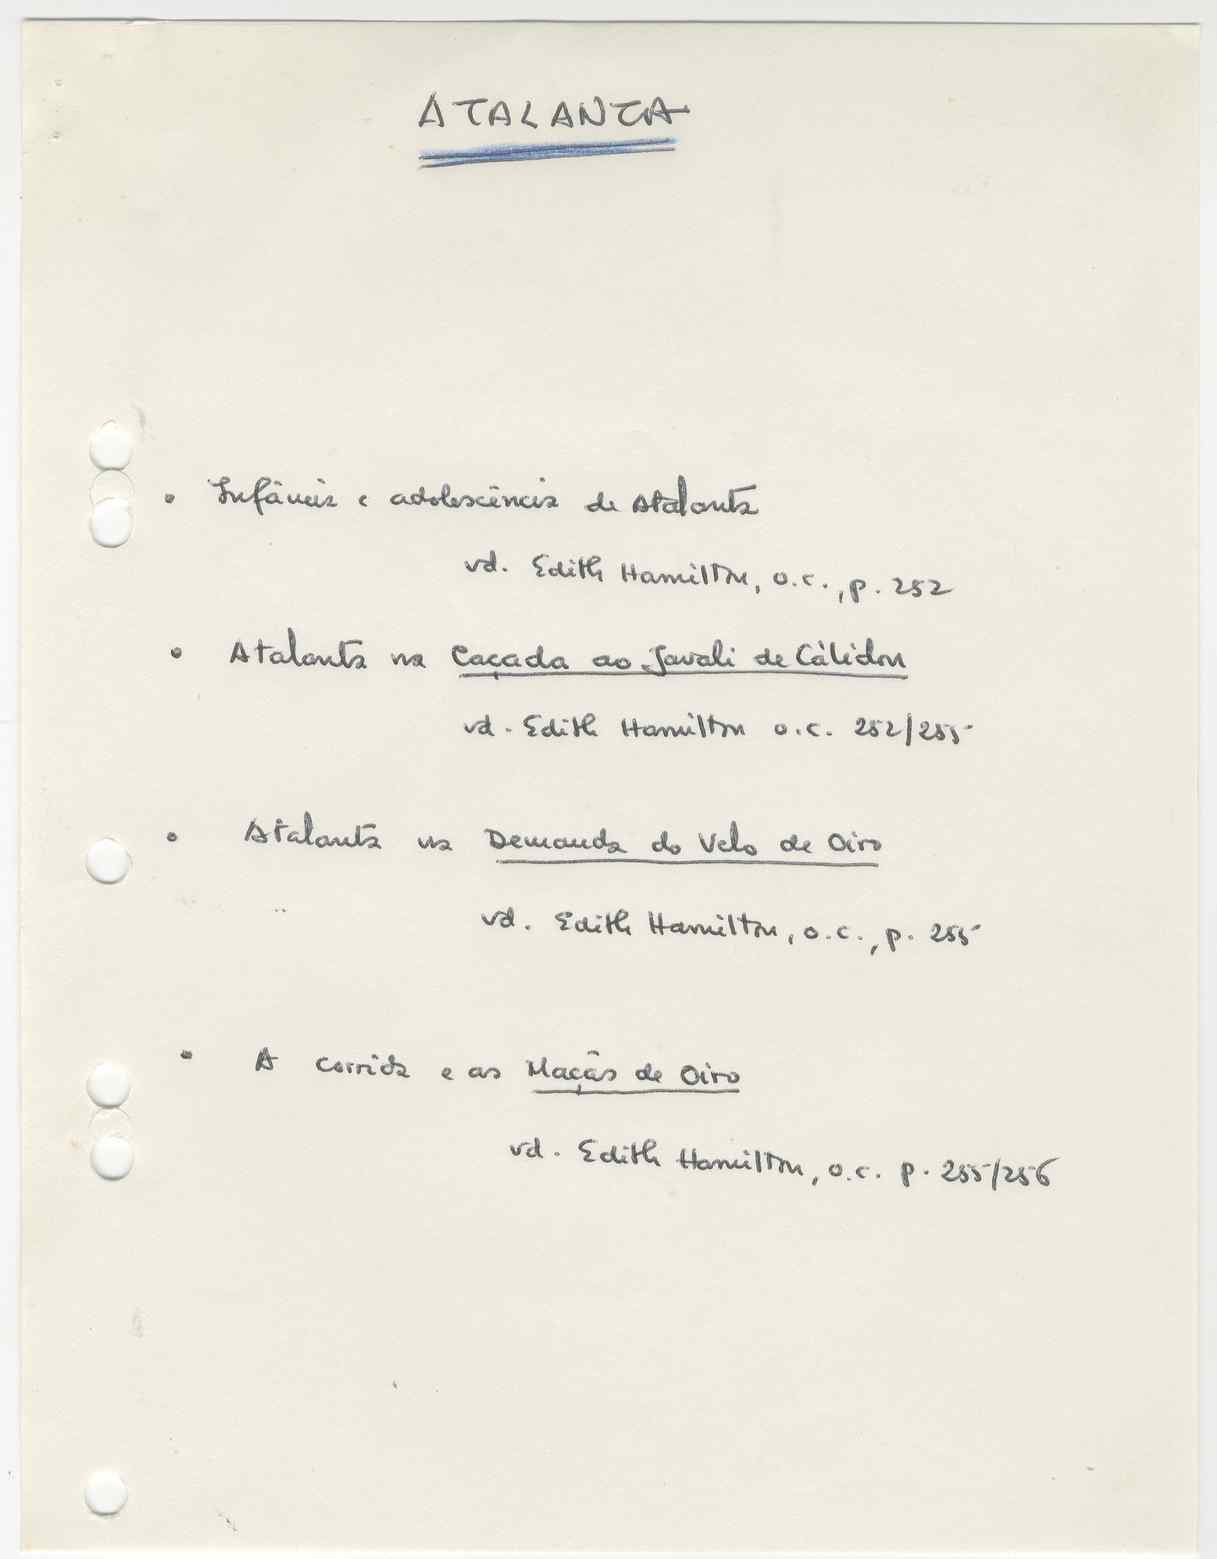 ATALANTA
• Infância e adolescência de Atalanta
vd. Edith Hamilton, o.c., p. 252
• Atalanta na Caçada ao Javali de Cálidon
vd. Edith Hamilton o.c. 252/255
• Atalanta na Demanda do Velo de Oiro
vd. Edith Hamilton, o.c., p. 255
• A corrida e as Maçãs de Oiro
vd. Edith Hamilton, o.c. p. 255/256